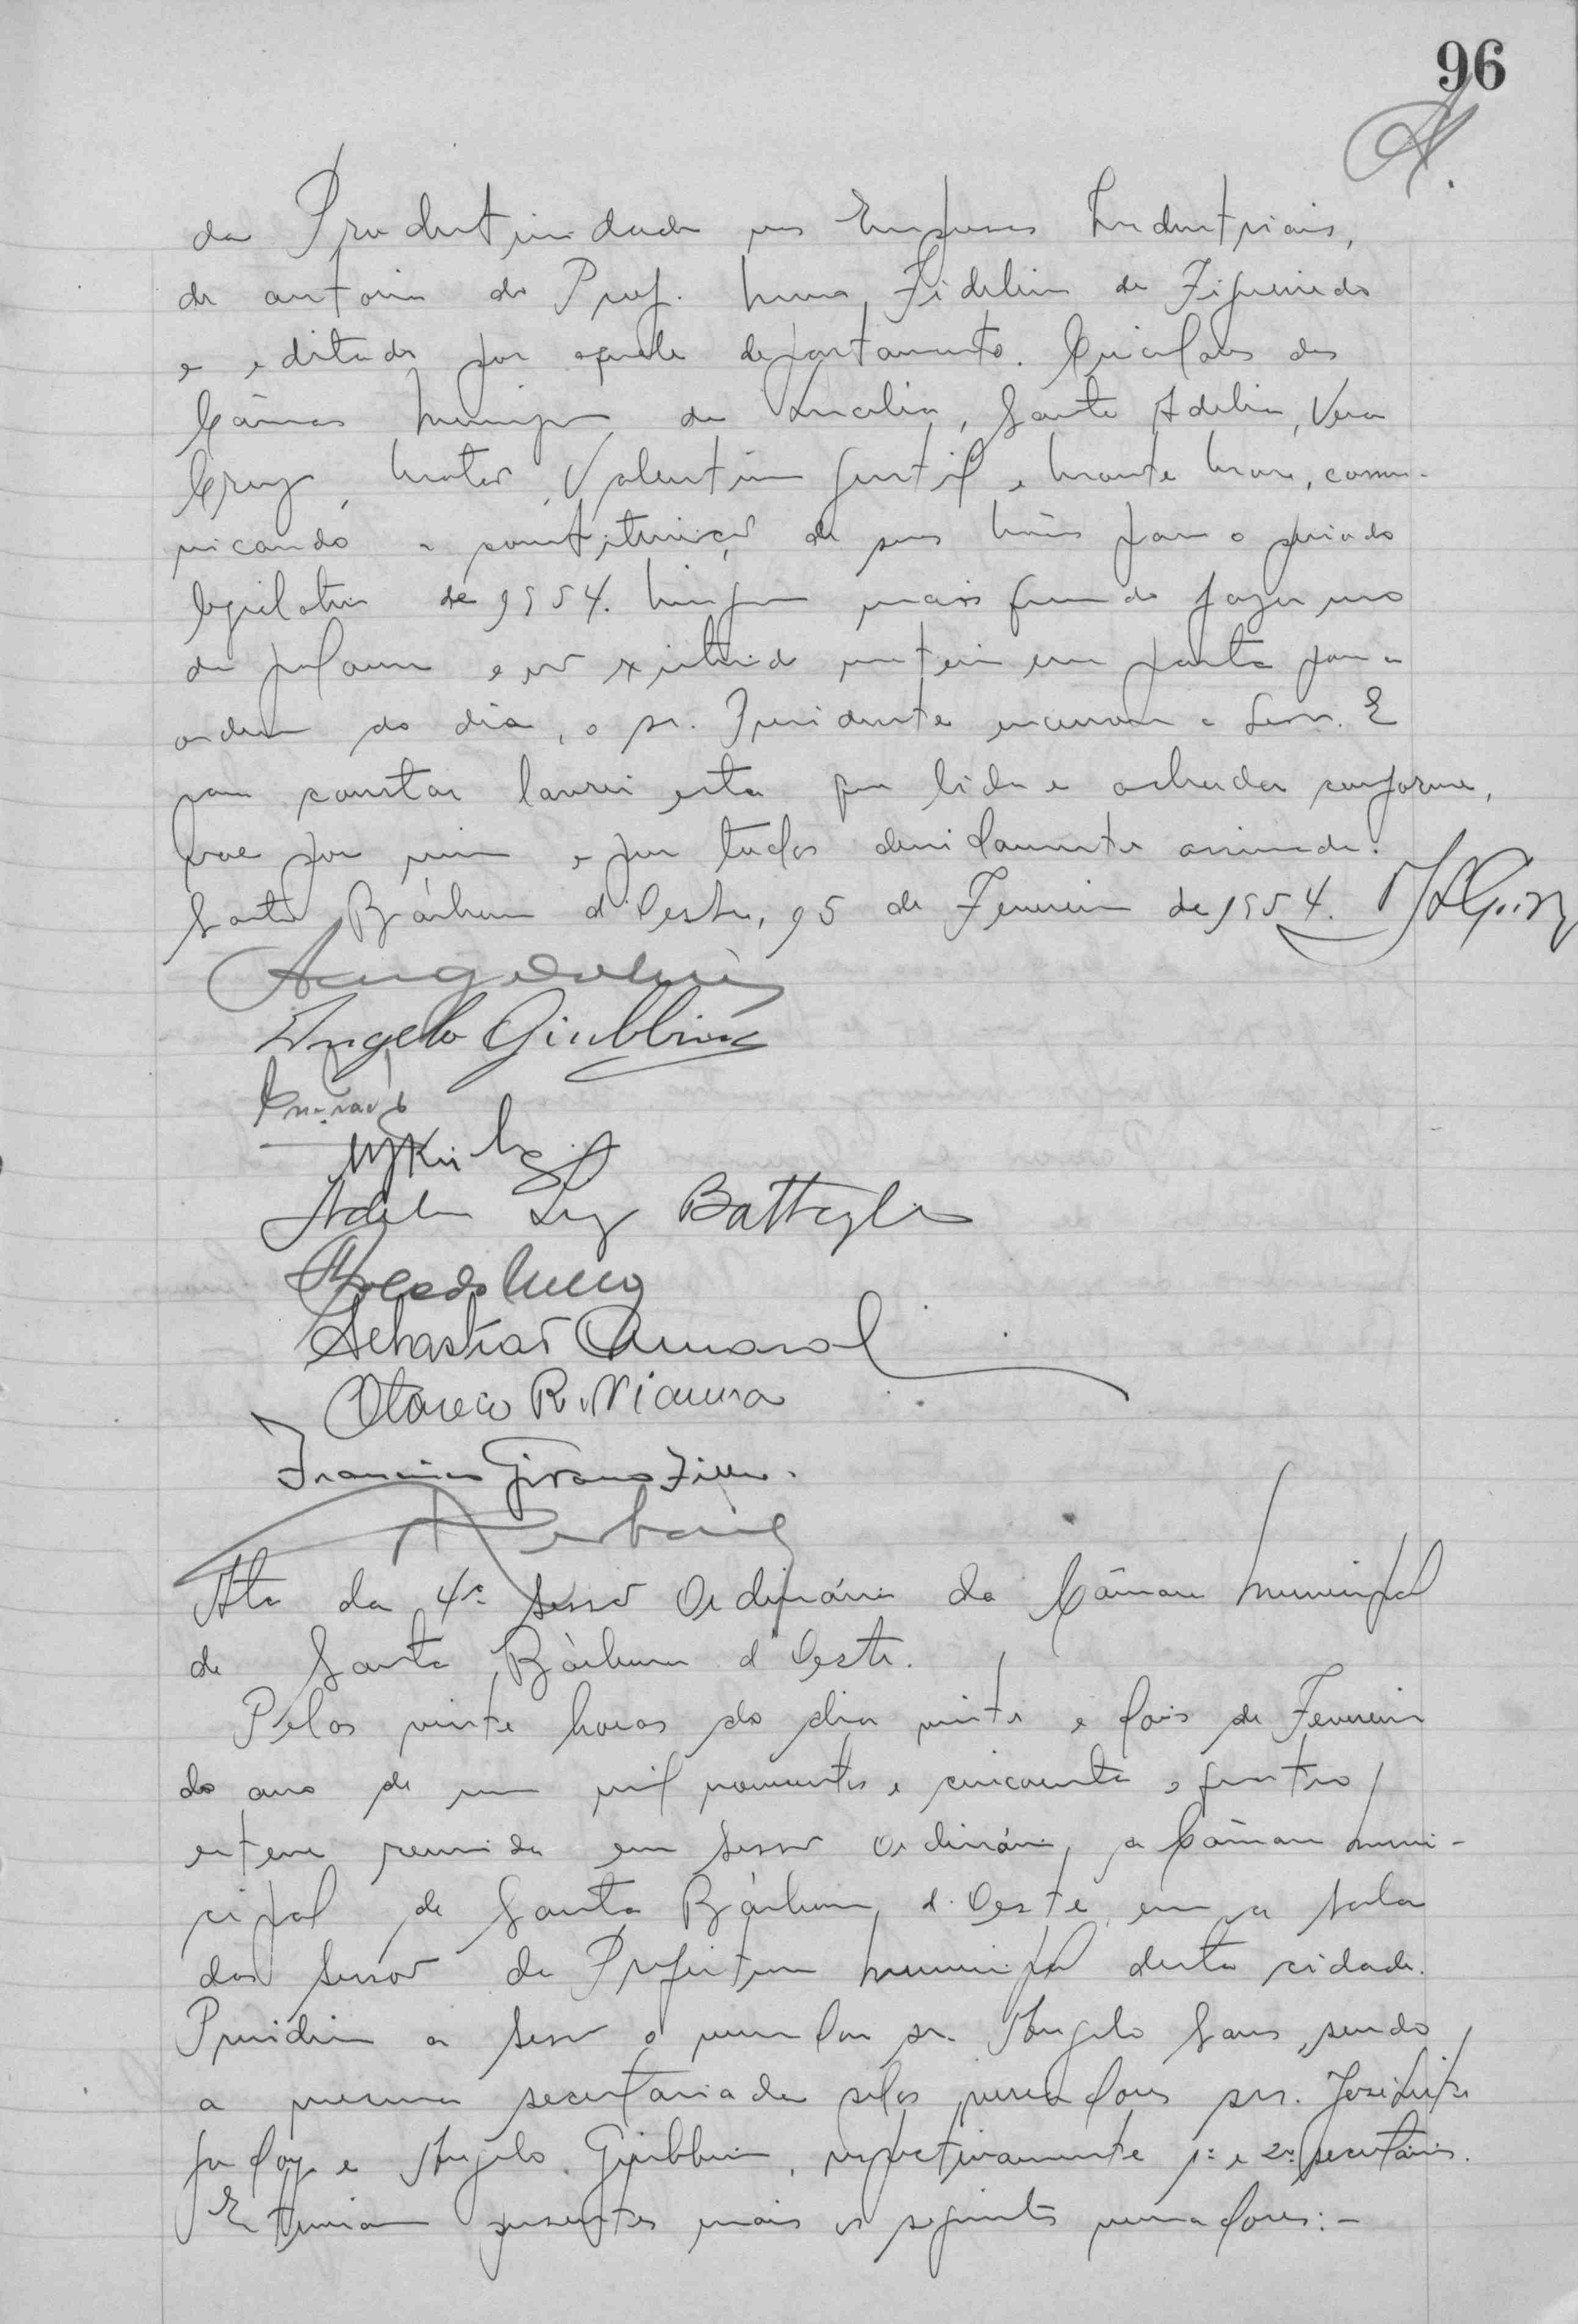 96
da Produtividade nas Empresas Industriais,
de autoria do Prof. Fidelino de Figueiredo
e editado por aquele departamento. Circulares das
Câmaras Municipais de Lucelia, Santa Adelia, Vera
Cruz, Matão, Valentim Gentil e Monte Mor, comu-
nicando a constituição de suas Mesas para o periodo
legislativo de 1954. Ninguem mais querendo fazer uso
da palavra e não existindo materia em pauta para a
ordem do dia, o sr. Presidente encerrou a Sessão. E
para constar lavrei esta que lida e achada conforme,
vae por mim e por todos devidamente assinada.
Santa Bárbara d'Oeste, 15 de Fevereiro de 1954.
Angelo Giubbina
Adelino Luz Battaglia
Sebastião Amaral
Otavio R. Vianna
Francisco Filho.
Ata da 4ª Sessão Ordinária da Câmara Municipal
de Santa Bárbara d'Oeste.
Pelas vinte horas do dia vinte e dois de Fevereiro
do ano de um mil novecentos e cincoenta e quatro,
esteve reunida em Sessão Ordinária, a Câmara Muni-
cipal de Santa Bárbara d'Oeste, em a sala
das Sessões da Prefeitura Municipal desta cidade.
Presidiu a Sessão o vereador sr. Angelo Sans, sendo
a mesma secretariada pelos vereadores srs. José
e Angelo Giubbina, respectivamente 1º e 2º secretários.
Estiveram presentes mais os seguintes vereadores:-